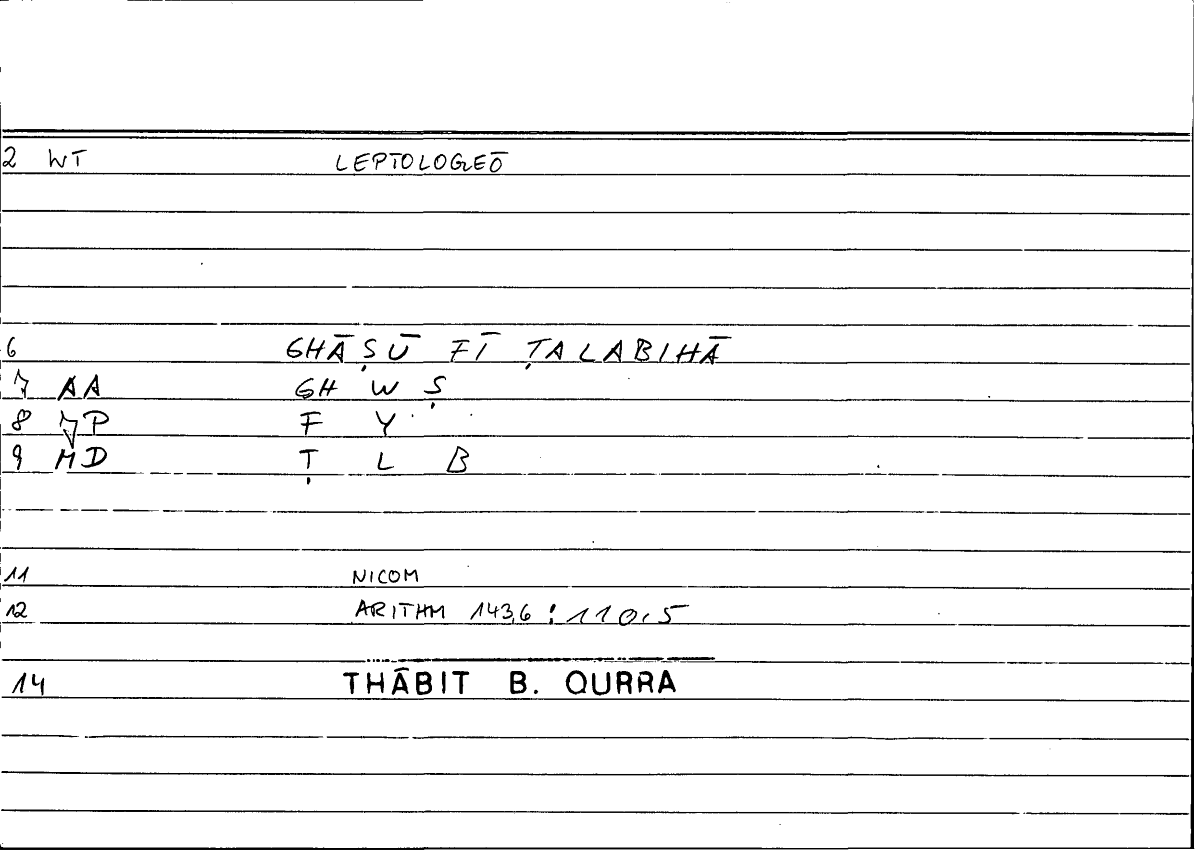 2 WT LEPTOLOGEŌ
6 GHĀṢŪ FĪ ṬALABIHĀ
7 AA GH W Ṣ
8 P F Y
9 MD Ṭ L B
11 NICOM
12 ARITHM 143,6 : 110,5
14 THĀBIT B. QURRA